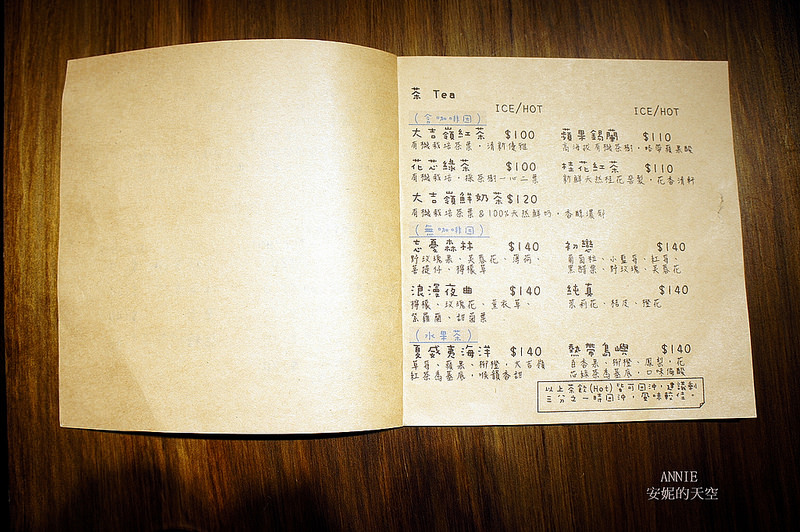 茶 Tea
ICE/HOT
ICE/HOT
(含咖啡因)
大吉嶺紅茶 $100
有機栽培茶葉,清新優雅
蘋果錫蘭 $110
高海拔有機茶樹,略帶蘋果酸
花芯綠茶 $100
有機栽培,採茶樹一心二葉
桂花紅茶 $110
新鮮天然桂花窨製,花香清軒
大吉嶺鮮奶茶 $120
有機栽培茶葉&100%天然鮮奶,香醇濃郁
(無咖啡因)
忘憂森林 $140
野玫瑰果、芙蓉花、薄荷、
菩提仔、檸檬草
初戀 $140
葡萄粒、小藍莓、紅莓、
黑醋栗、野玫瑰、芙蓉花
浪漫夜曲 $140
檸檬、玫瑰花、薰衣草、
紫羅蘭、甜菊葉
純真 $140
茉莉花、桔皮、橙花
(水果茶)
夏威夷海洋 $140
草莓、蘋果、柳橙,大吉嶺
紅茶為基底,喉韻香甜
熱帶島嶼 $140
百香果、柳橙、鳳梨,花
芯綠茶為基底,口味偏酸
以上茶飲(Hot)皆可回沖,建議剩
三分之一時回沖,風味較佳。
ANNIE
安妮的天空